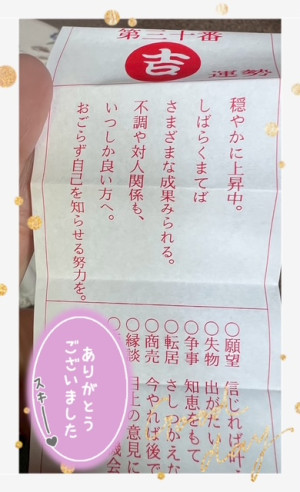 第三十番
吉
運勢
穏やかに上昇中。
しばらくまてば
さまざまな成果みられる。
不調や対人関係も、
いつしか良い方へ。
おごらず自己を知らせる努力を。
○願望 信じれば叶
○失物 出がたい
○争事 知恵をもて
○転居 さしつかえな
○商売 今やれば後で
○縁談 目上の意見に
ありがとう
ございました
スキー